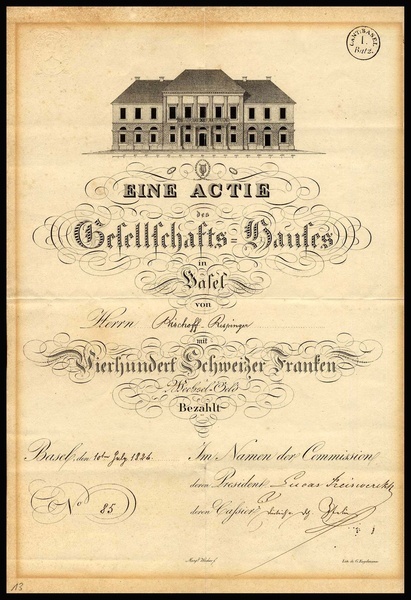 CANT: BASEL
1.
Batz.
EINE ACTIE
des
Gesellschafts=Hauses
in
Basel
von
Herrn Bischoff-Respinger
mit
Vierhundert Schweizer Franken
Wechsel-Geld
Bezahlt
Basel, den 10ten July 1826.
Im Namen der Commission
deren President Lucas
deren Cassier
No 85
13